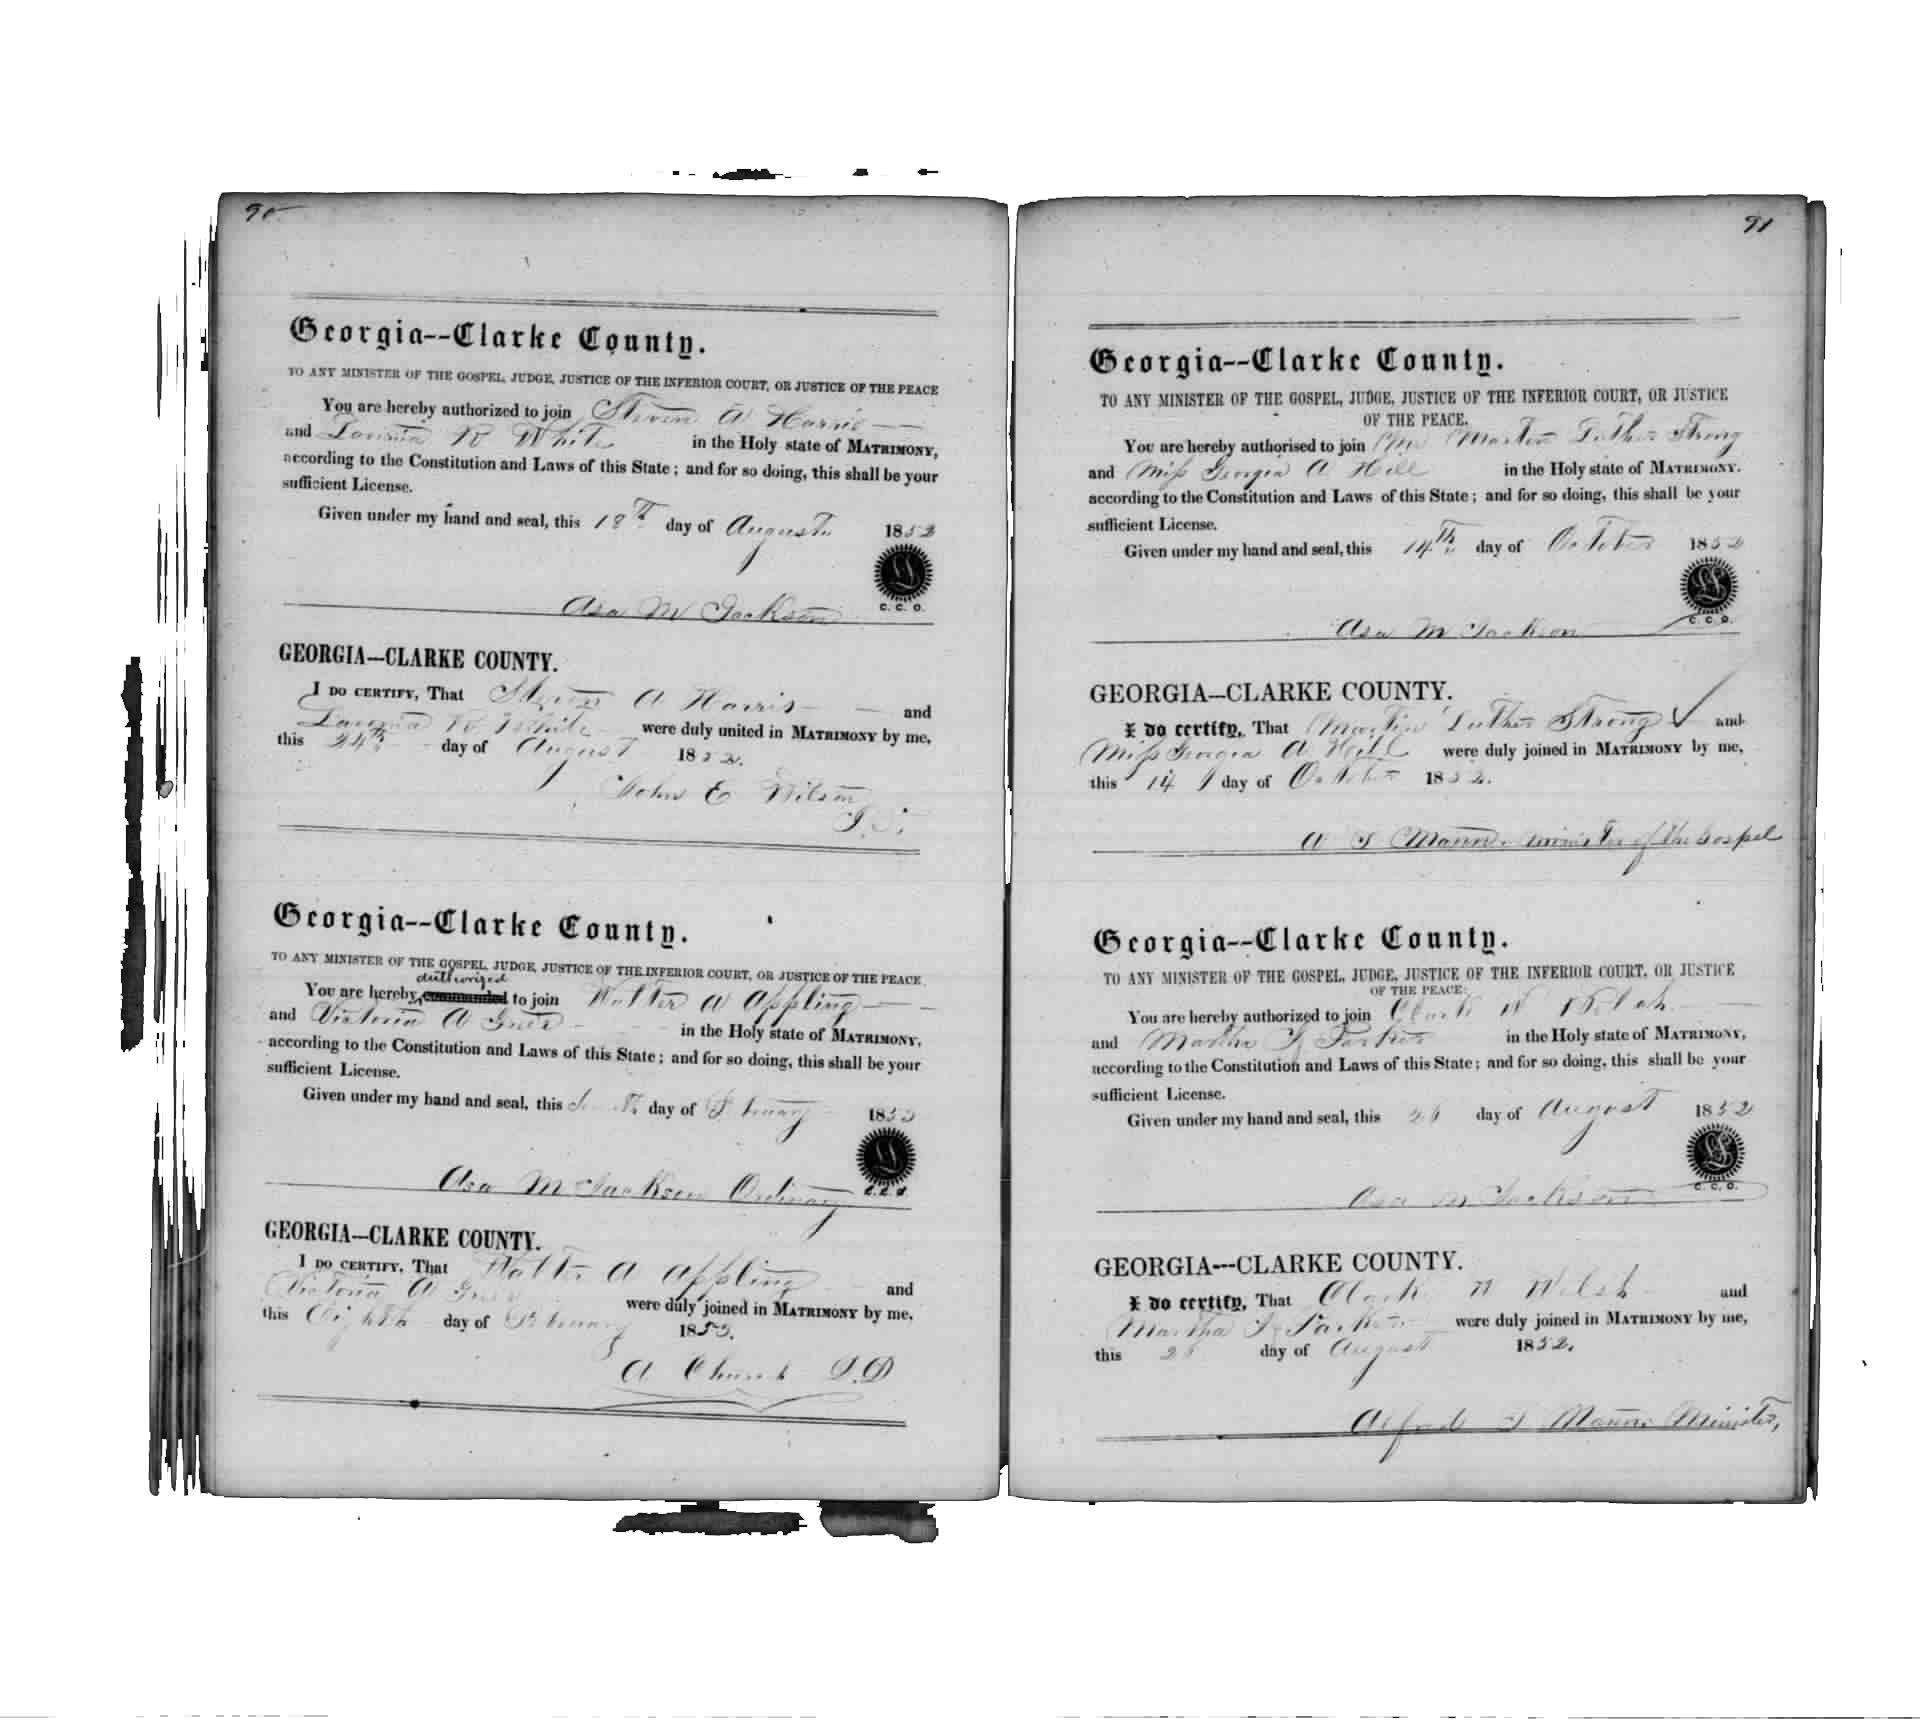 90
Georgia--Clarke County.
TO ANY MINISTER OF THE GOSPEL, JUDGE, JUSTICE OF THE INFERIOR COURT, OR JUSTICE OF THE PEACE
You are hereby authorized to join Steven A Harris
and R White in the Holy state of MATRIMONY,
according to the Constitution and Laws of this State; and for so doing, this shall be your
sufficient License.
Given under my hand and seal, this 18th day of August 1852
Asa M Jackson
C. C. O.
GEORGIA—CLARKE COUNTY.
I DO CERTIFY, That Steven A Harris and
R White were duly united in MATRIMONY by me,
this 24th day of August 1852.
John E Wilson
Georgia--Clarke County.
TO ANY MINISTER OF THE GOSPEL, JUDGE, JUSTICE OF THE INFERIOR COURT, OR JUSTICE OF THE PEACE
authorized
You are hereby commanded to join Walter A Appling
and Victoria A Grier in the Holy state of MATRIMONY,
according to the Constitution and Laws of this State; and for so doing, this shall be your
sufficient License.
Given under my hand and seal, this day of February 1853
Asa M Jackson Ordinary
GEORGIA—CLARKE COUNTY.
I DO CERTIFY, That Walter A Appling and
Victoria A Grier were duly joined in MATRIMONY by me,
this Eighth day of February 1853.
A Church D.D
91
Georgia--Clarke County.
TO ANY MINISTER OF THE GOSPEL, JUDGE, JUSTICE OF THE INFERIOR COURT, OR JUSTICE
OF THE PEACE.
You are hereby authorised to join Mr Martin Luther Strong
and Miss Georgia A Hill in the Holy state of MATRIMONY.
according to the Constitution and Laws of this State; and for so doing, this shall be your
sufficient License.
Given under my hand and seal, this 14th day of October 1852
C. C. O.
Asa M Jackson
GEORGIA—CLARKE COUNTY.
I do certify, That Martin Luther Strong and
Miss Georgia A Hill were duly joined in MATRIMONY by me,
this 14 day of October 1852.
A T Mann minister of the Gospel
Georgia--Clarke County.
TO ANY MINISTER OF THE GOSPEL, JUDGE, JUSTICE OF THE INFERIOR COURT, OR JUSTICE
OF THE PEACE:
You are hereby authorized to join Clark W Welsh
and Martha Parker in the Holy state of MATRIMONY,
according to the Constitution and Laws of this State; and for so doing, this shall be your
sufficient License.
Given under my hand and seal, this 26 day of August 1852
C. C. O.
Asa M Jackson
GEORGIA---CLARKE COUNTY.
I do certify, That Clark W Welsh and
Martha Parker were duly joined in MATRIMONY by me,
this 26 day of August 1852.
Alfred T Mann Minister,